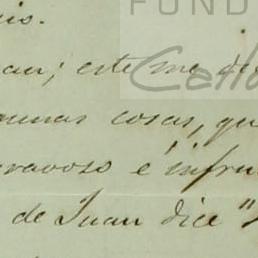 is.
FUND
an; este me di
Call
unas cosas, qu
gravoso é infru
de Juan dice "